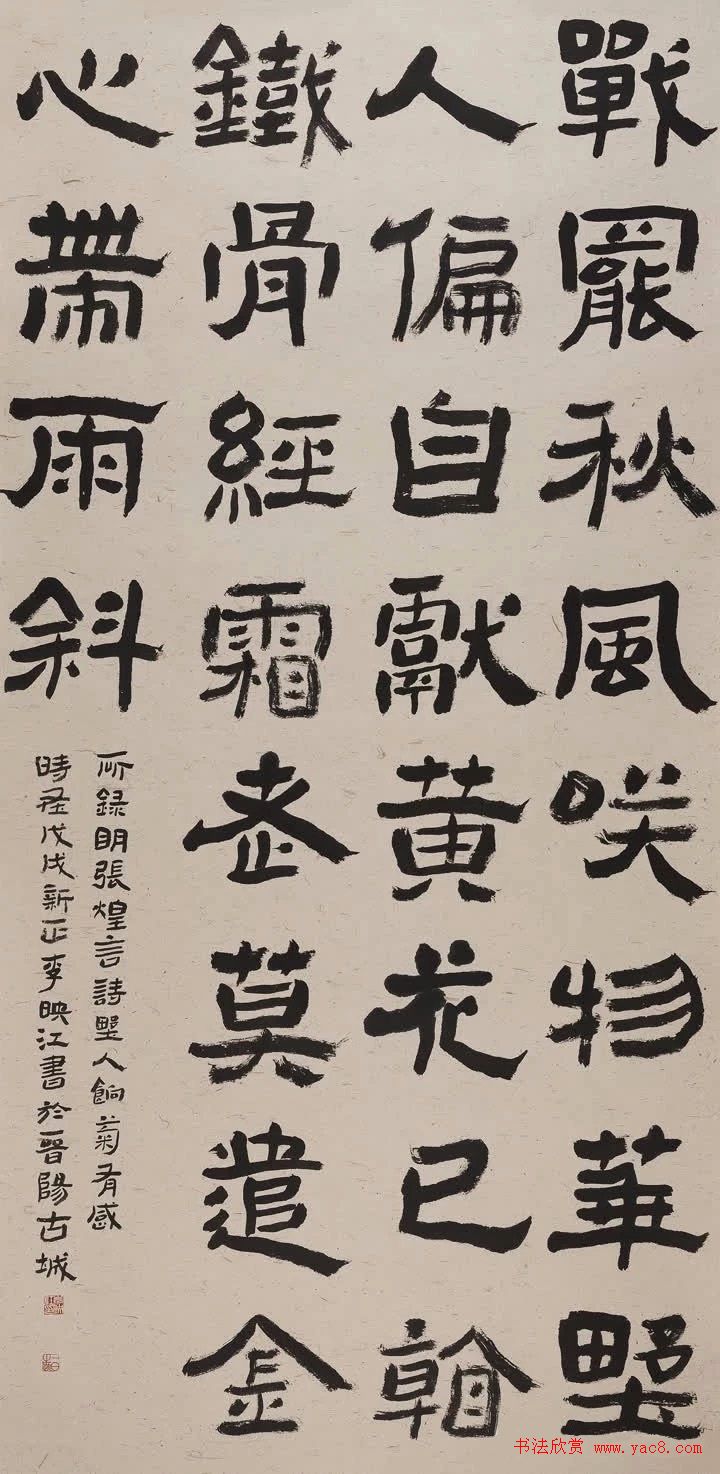 戰罷秋風咲物華野
人偏自獻黃花已看
鐵骨經霜老莫遣金
心帶雨斜
所錄明張煌言詩野人餉菊有感
時在戊戌新正李映江書於晉陽古城
书法欣赏 www.yac8.com